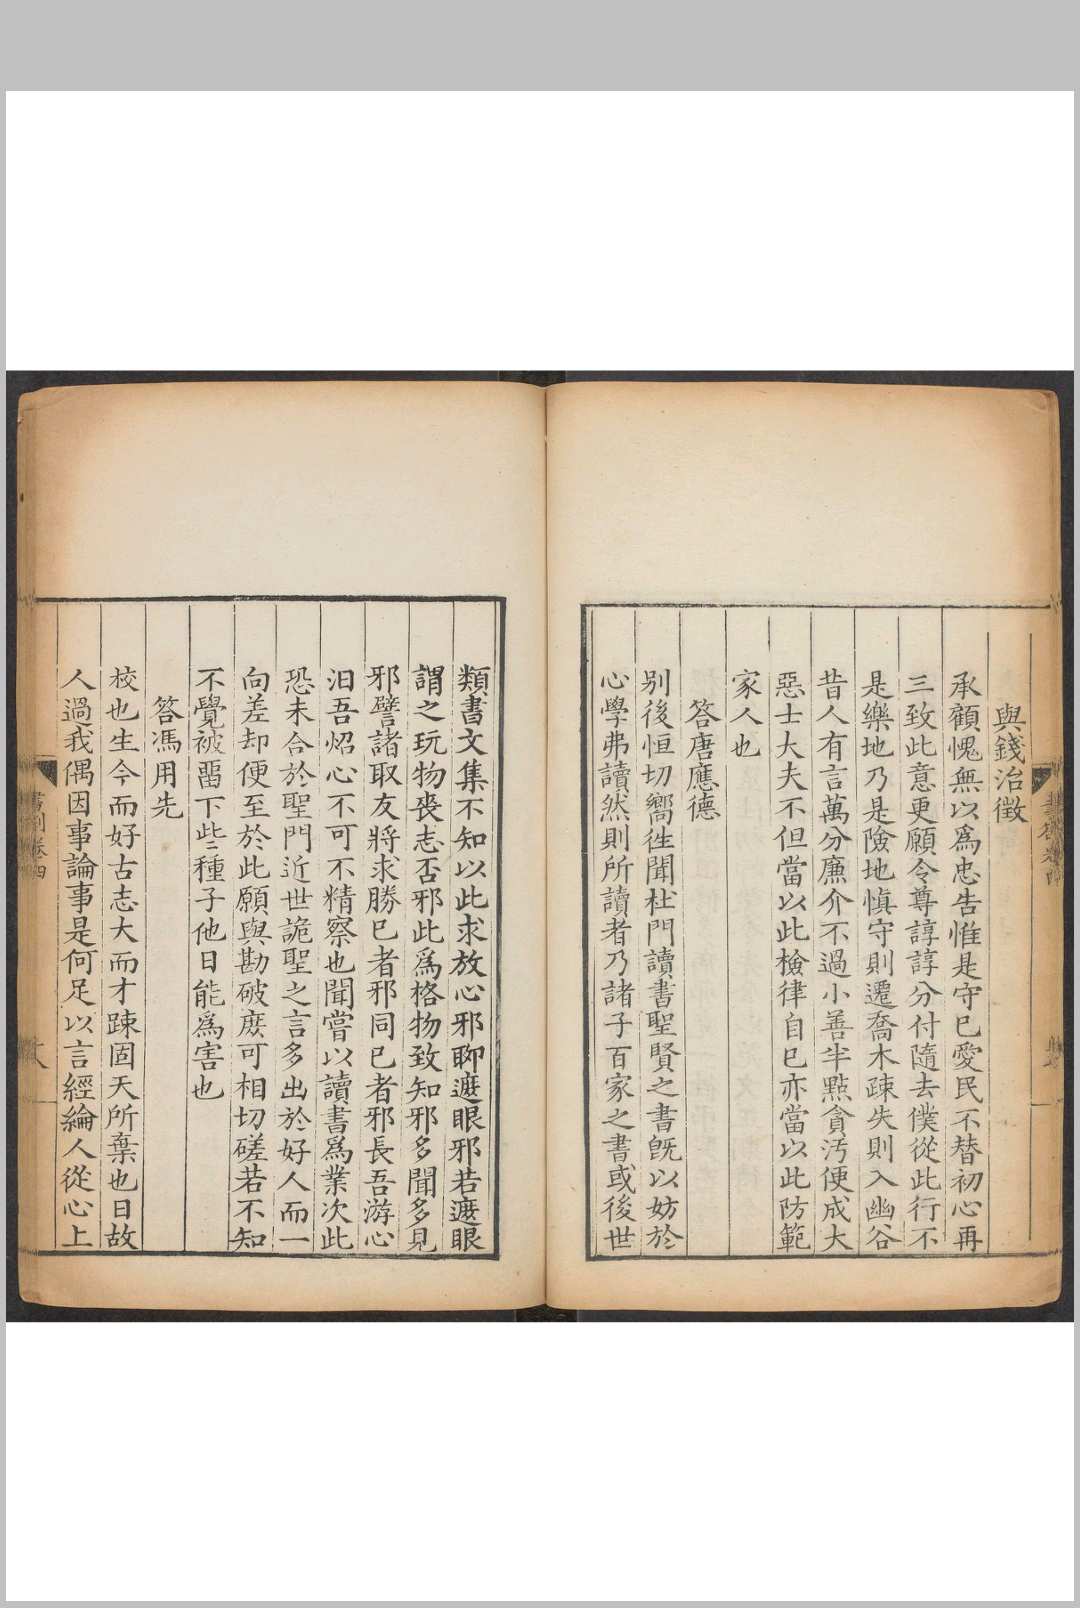 與錢治徵
承顧愧無以爲忠告惟是守巳愛民不替初心再
三致此意更願令尊諄諄分付隨去僕從此行不
是樂地乃是險地慎守則遷喬木踈失則入幽谷
昔人有言萬分廉介不過小善半點貪汚便成大
惡士大夫不但當以此檢律自巳亦當以此防範
家人也
答唐應德
別後恒切嚮徃聞杜門讀書聖賢之書旣以妨於
心學弗讀然則所讀者乃諸子百家之書或後世
類書文集不知以此求放心邪聊遮眼邪若遮眼
謂之玩物喪志否邪此爲格物致知邪多聞多見
邪譬諸取友將求勝巳者邪同巳者邪長吾游心
汨吾炤心不可不精察也聞嘗以讀書爲業次此
恐未合於聖門近世詭聖之言多出於好人而一
向差却便至於此願與勘破庶可相切磋若不知
不覺被畱下此三種子他日能爲害也
答馮用先
校也生今而好古志大而才踈固天所棄也日故
人過我偶因事論事是何足以言經綸人從心上
書劄卷四